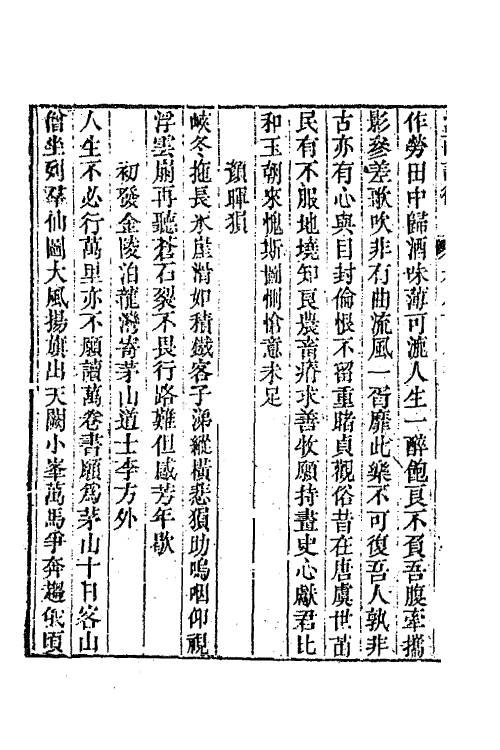 作勞田中歸酒味薄可漉人生一醉飽良不負吾腹牽攜
影參差歌吹非有曲流風一胥靡此樂不可復吾人孰非
古亦有心與目封倫恨不畱重睹貞觀俗昔在唐虞世苗
民有不服地墝知良農畜瘠求善牧願持畫史心獻君比
和玉朝來愧斯圖惻愴意未足
顏暉猿
峽冬拖長氷崖滑如積鐵客子涕縱橫悲猿助嗚咽仰視
浮雲崩再聽蒼石裂不畏行路難但感芳年歇
初發金陵泊龍灣寄茅山道士李方外
人生不必行萬里亦不願讀萬卷書願爲茅山十日客山
僧坐列羣仙圖大風揚旗出天闕小峯萬馬爭奔趨俄頃